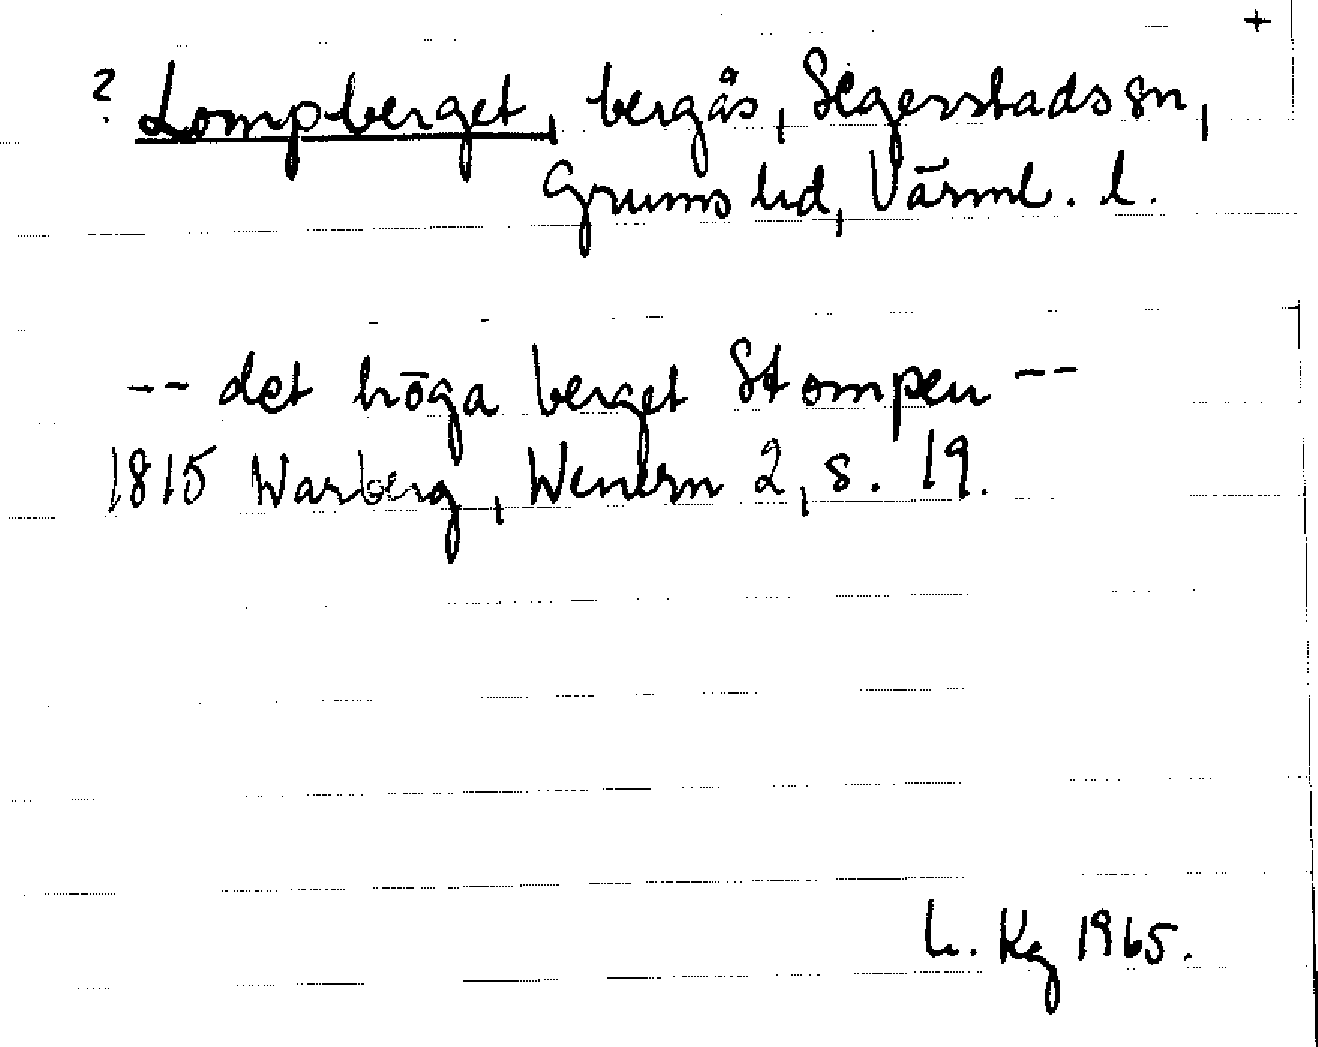 +
? Lompberget, bergås, Segerstads sn,
Grums hd, Värml. l.
-- det höga berget Stompen --
1815 Warberg, Wenern 2, s. 19.
L. Kg 1965.